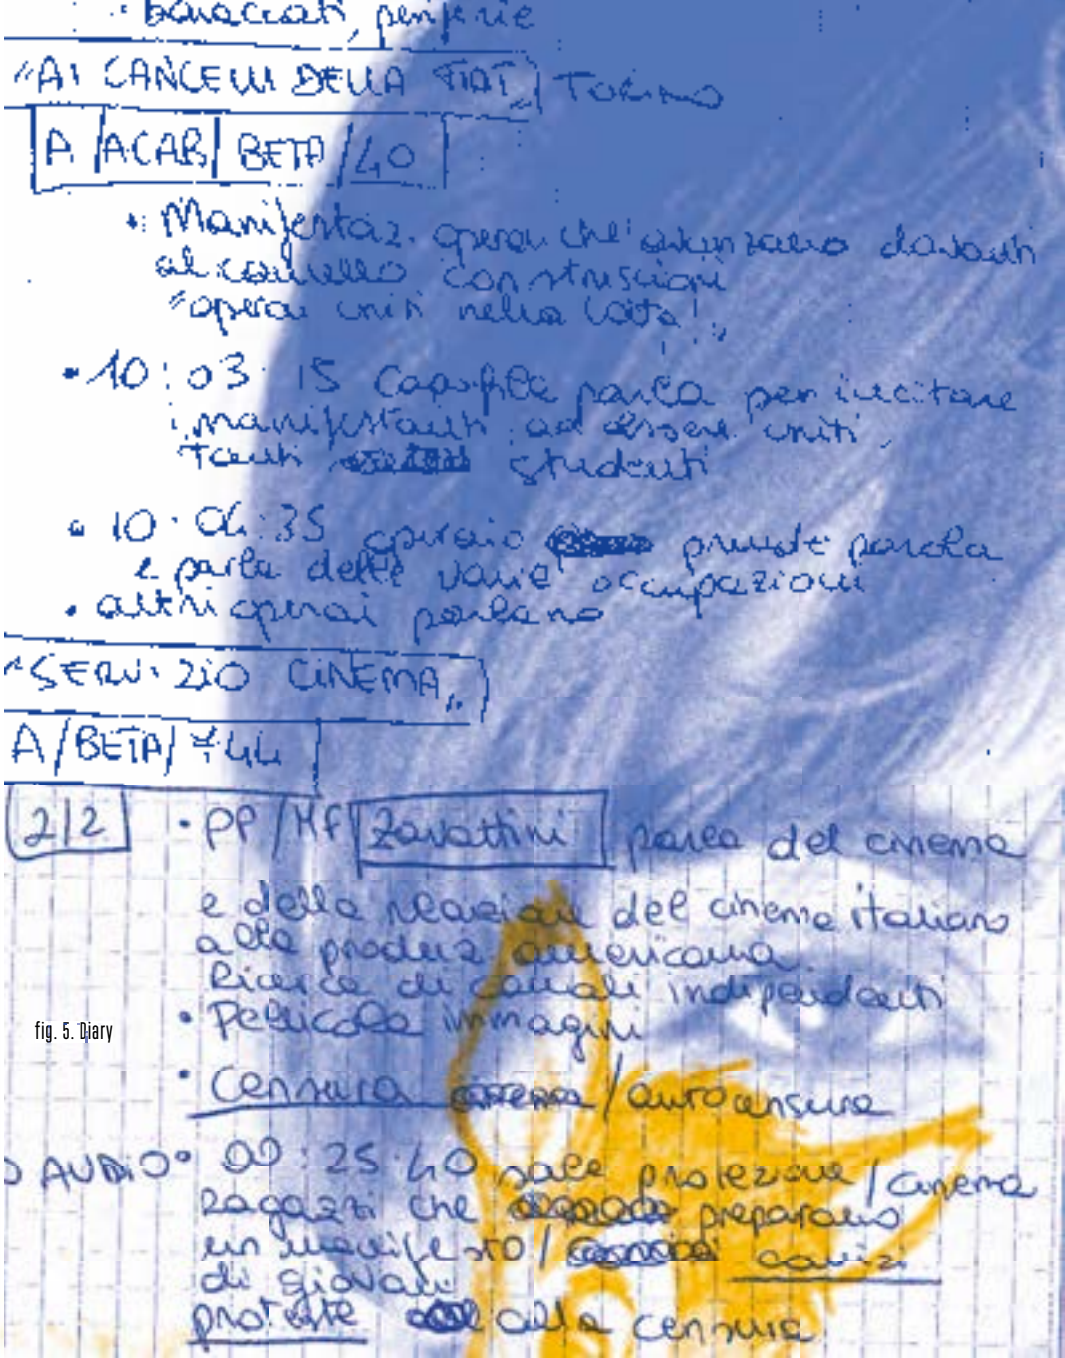 · baraccati, periferie
"AI CANCELLI DELLA FIAT" Torino
A /ACAB/ BETA /40
• Manifestaz. operai che avanzano davanti
al cancello con striscioni
"operai uniti nella lotta"
• 10:03:15 Capofila parla per incitare
i manifestanti ad essere uniti,
tanti studenti
• 10:04:35 operaio prende parola
e parla delle varie occupazioni
• altri operai parlano
"SERVIZIO CINEMA"
A/BETA/744
212 • PP/MF Zavattini parla del cinema
e della relazione del cinema italiano
alla produz americana
Ricerca di canali indipendenti
• Pellicola immagini
fig. 5. Diary
• Censura /autocensura
AUDIO • 00:25:40 sala proiezione/cinema
ragazzi che preparano
un manifesto/
di giovani
proteste alla censura